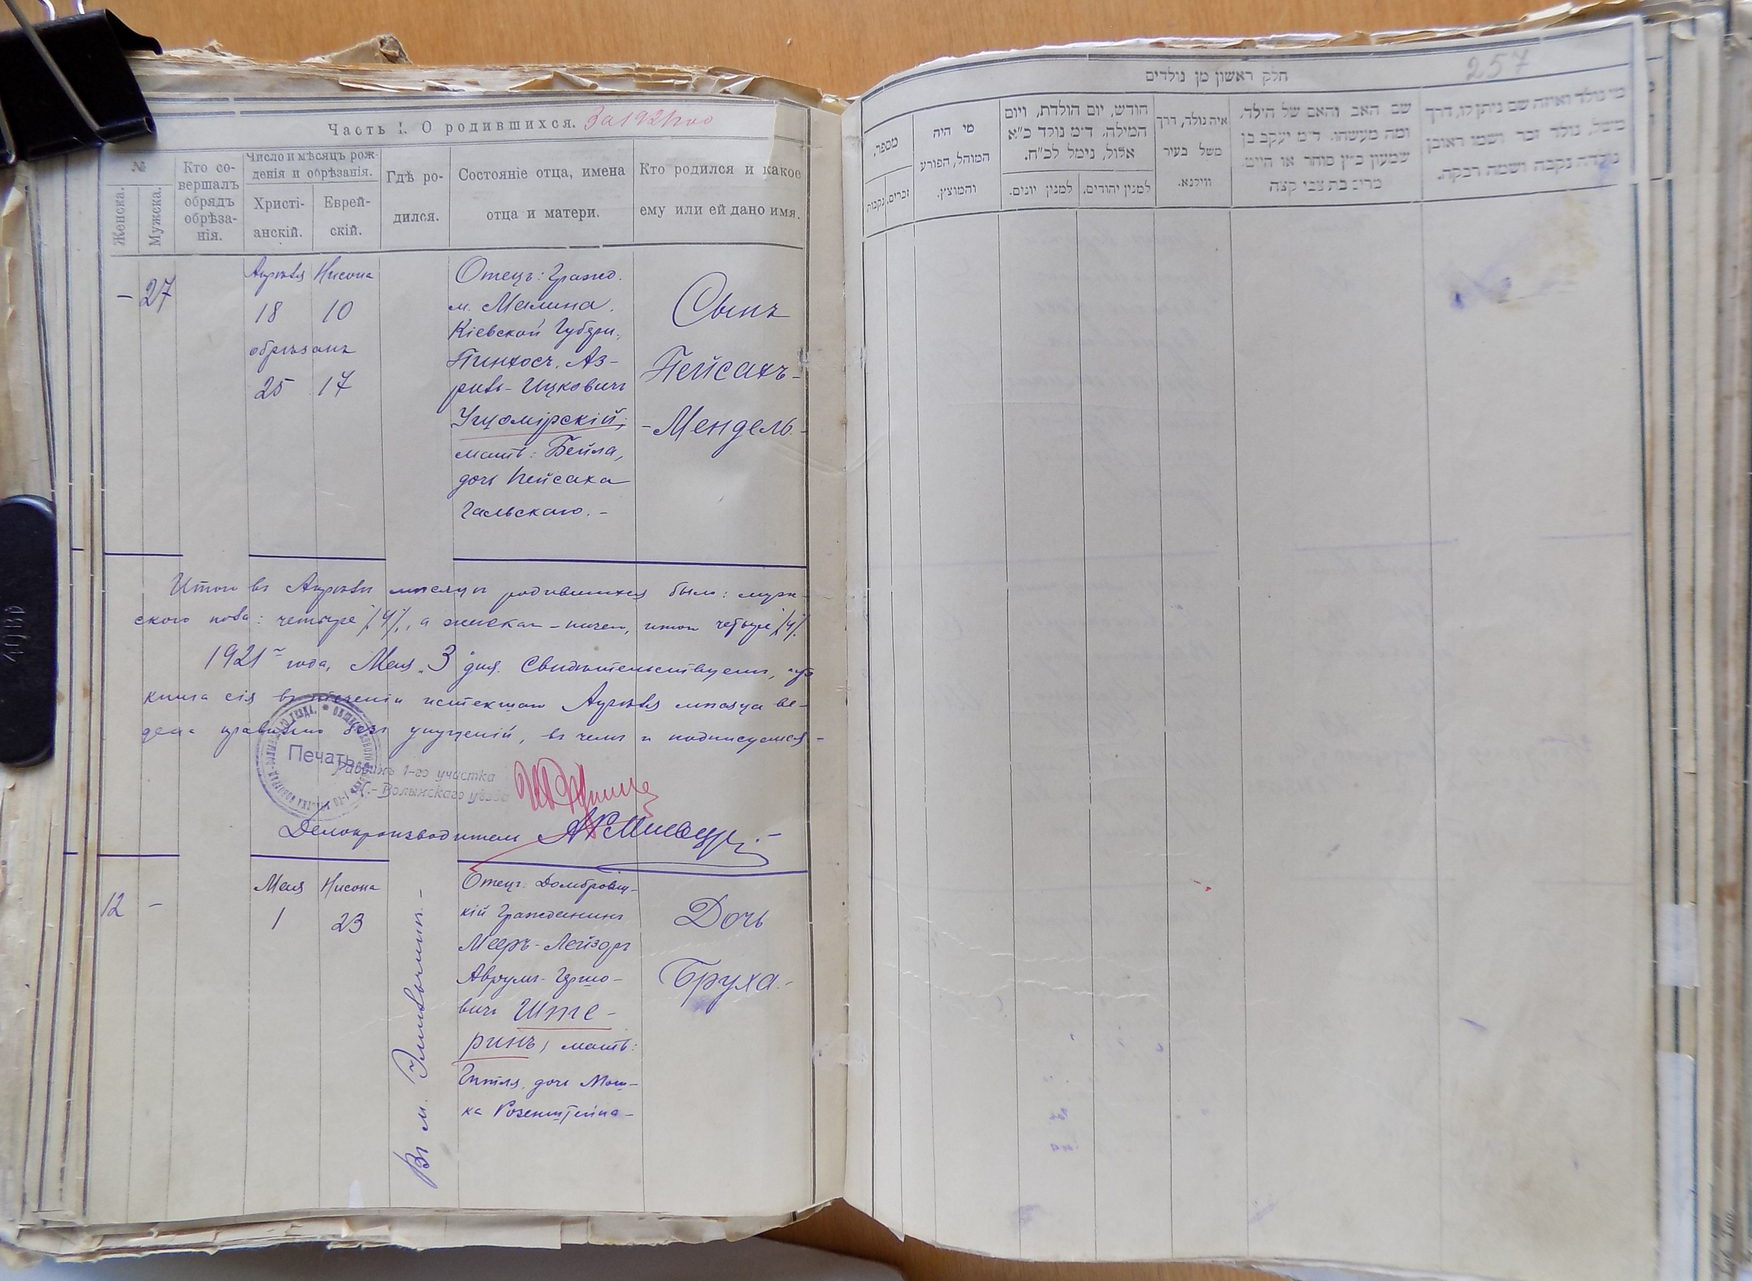 Часть I. О родившихся. За 1921 год
№
Женска.
Мужска.
Кто со-
вершалъ
обрядъ
обрѣза-
нія.
Число и мѣсяцъ рож-
денія и обрѣзанія.
Христі-
анскій.
Еврей-
скій.
Гдѣ ро-
дился.
Состояніе отца, имена
отца и матери.
Кто родился и какое
ему или ей дано имя.
– 27
Апрѣля Нисона
18 10
обрѣзанъ
25 17
Отецъ: Гражд.
м. Малина,
Кіевской Губерн.
Пинхосъ, Аз-
риль-Ицковичъ
Ушомірскій;
мать: Бейла,
дочь Пейсаха
Гальскаго.-
Сынъ
Пейсахъ-
-Мендель-
Итого въ Апрѣлѣ мѣсяцѣ родившихся было: муж-
ского пола: четыре /4/, а женскаго - ничего, итого четыре /4/.
1921 года, Мая 3 дня. Свидѣтельствуемъ, что
книга сія въ теченіи истекшаго Апрѣля мѣсяца ве-
дена правильно безъ упущеній, въ чемъ и подписуемся-
Печать
Раввинъ 1-го участка
-Волынскаго уѣзда
Делопроизводитель
12 –
Мая Нисона
1 23
Въ м. Эмильчинѣ.-
Отецъ: Домбровиц-
кій Гражданинъ
Мееръ-Лейзоръ
Аврумъ-Гершо-
вичъ Ште-
ринъ, мать:
Гитля, дочь Мош-
ка Розенштейна-
Дочь
Бруха.-
257
חלק ראשון מן נולדים
מספר,
זכרים.
נקבות
מי היה
המוהל, הפורע
והמוצץ.
חודש, יום הולדת, ויום
המילה, ד״מ נולד כ״א
אלול, נימל לכ״ח.
למנין יונים.
למנין יהודים.
איה נולד, דרך
משל בעיר
ווילנא.
שם האב והאם של הילד,
ומה מעשהו, ד״מ יעקב בן
שמעון כ״ץ סוחר או חייט.
מרים בת צבי קצה
מי נולד ואיזה שם ניתן לו, דרך
משל, נולד זכר ושמו ראובן
נולדה נקבה ושמה רבקה.